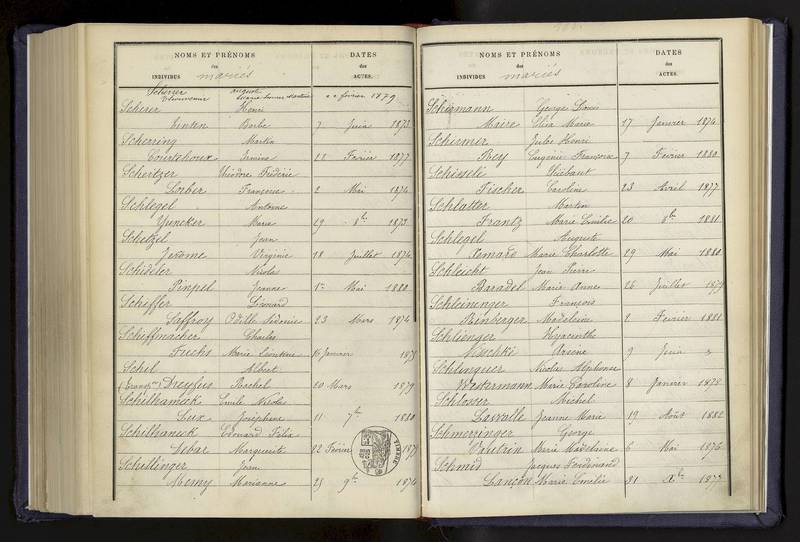 NOMS ET PRÉNOMS DATES
des des
INDIVIDUS mariés ACTES.
Scherer Auguste
février 1879
Scherer Henri
Zinten Barbe 7 Juin 1873
Scherring Martin
Courtehoux Ermine 22 Février 1877
Scheitzer Théodore Frédéric
Lorber Françoise 2 Mai 1874
Schlegel Antoine
Yuncker Marie 29 8bre 1873
Schetzel Jean
Jerome Virginie 18 Juillet 1874
Schideler Nicolas
Pinpel Jeanne 1er Mai 1880
Schiffer Léonard
Saffroy Odille Sidonie 23 Mars 1874
Schiffmacher Charles
Fuchs Marie Léontine 16 Janvier
Schil Albert
Dreyfus Rachel 20 Mars 1879
Schilthameck Emile Nicolas
Lux Joséphine 11 7bre 1880
Schilthaneck Edouard Félix
Debar Marguerite 22 Février
Schillinger Jean
Memy Marianne 28 9bre 1874
NOMS ET PRÉNOMS DATES
des des
INDIVIDUS mariés ACTES.
Schirmann George Louis
Maire Elia Marie 17 Janvier 1874
Schirmer Jules Henri
Rey Eugénie Françoise 7 Février 1880
Schissele Thiébaut
Fischer Caroline 23 Avril 1877
Schlatter Martin
Frantz Marie Emilie 20 8bre 1881
Schlegel Auguste
Marie Charlotte 29 Mai 1880
Schleicht Jean Pierre
Baradel Marie Anne 26 Juillet 1879
Schleininger François
Rinberger Madeleine 2 Février 1881
Schlienger Hyacinthe
Nischki Arsène 9 Juin
Schlinquer Nicolas Alphonse
Westermann Marie Caroline 8 Janvier 1878
Schlosser Michel
Lasvolle Jeanne Marie 19 Août 1882
Schmerzinger George
Valutrin Marie Madelaine 6 Mai 1876
Schmid Jacques Ferdinand
Lançon Marie Emelie 31 Xbre 1877